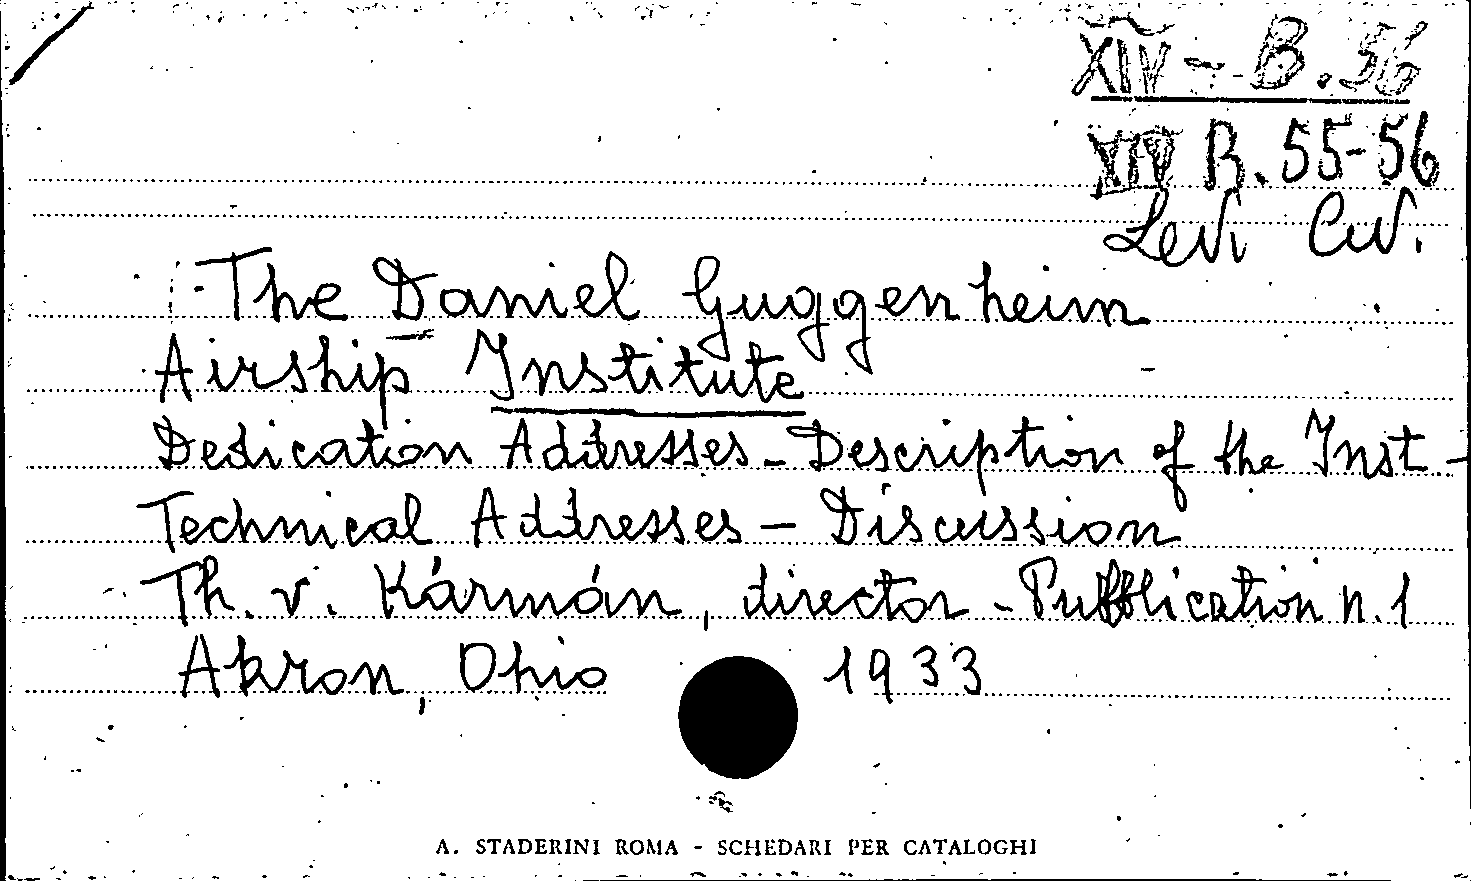 XIV - B. 56
XIV B. 55-56
Levi Civ.
The Daniel Guggenheim
Airship Institute
Dedication Addresses - Description of the Inst -
Technical Addresses - Discussion
Th. v. Kármán, director - Publication n. 1
Akron, Ohio 1933
A. STADERINI ROMA - SCHEDARI PER CATALOGHI